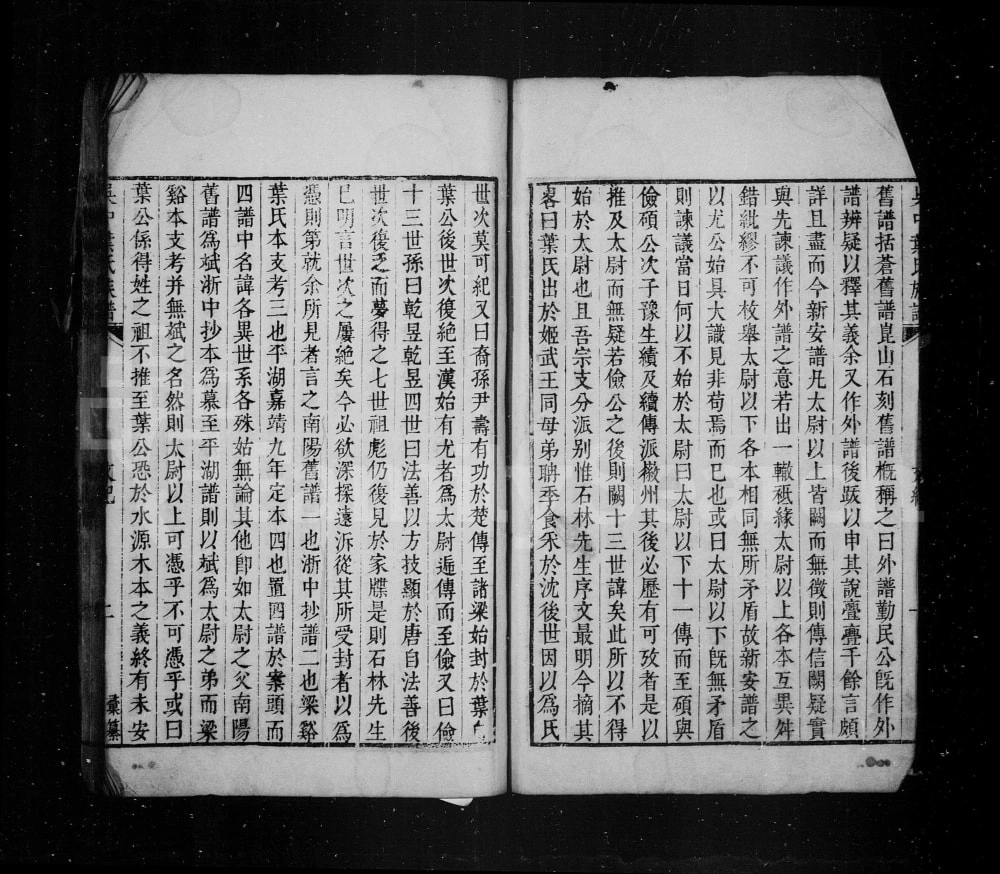 吳中葉氏族譜
舊譜括蒼舊譜崑山石刻舊譜槪稱之曰外譜勤民公旣作外
譜辨疑以釋其義余又作外譜後䟦以申其說亹亹千餘言頗
詳且盡而今新安譜凡太尉以上皆闕而無徵則傳信闕疑實
與先諫議作外譜之意若出一轍秪緣太尉以上各本互異舛
錯紕繆不可枚舉太尉以下各本相同無所矛盾故新安譜之
以尤公始具大識見非苟焉而已也或曰太尉以下旣無矛盾
則諫議當日何以不始於太尉曰太尉以下十一傳而至碩與
儉碩公次子豫生績及續傳派徽州其後必歷有可攷者是以
推及太尉而無疑若儉公之後則闕十三世諱矣此所以不得
始於太尉也且吾宗支分派别惟石林先生序文最明今摘其
畧曰葉氏出於姬武王同母弟聃季食采於沈後世因以爲氏
世次莫可紀又曰裔孫尹壽有功於楚傳至諸梁始封於葉
葉公後世次復絶至漢始有尤者爲太尉遞傳而至儉又曰儉
十三世孫曰乾昱乾昱四世曰法善以方技顯於唐自法善後
世次復乏而夢得之七世祖彪仍復見於家牒是則石林先生
已明言世次之屢絶矣今必欲深探遠泝從其所受封者以爲
憑則第就余所見者言之南陽舊譜一也浙中抄譜二也梁谿
葉氏本支考三也平湖嘉靖九年定本四也置四譜於案頭而
四譜中名諱各異世系各殊姑無論其他卽如太尉之父南陽
舊譜爲斌浙中抄本爲慕至平湖譜則以斌爲太尉之弟而梁
谿本支考并無斌之名然則太尉以上可憑乎不可憑乎或曰
葉公係得姓之祖不推至葉公恐於水源木本之義終有未安
吳中葉氏族譜
二
彙纂